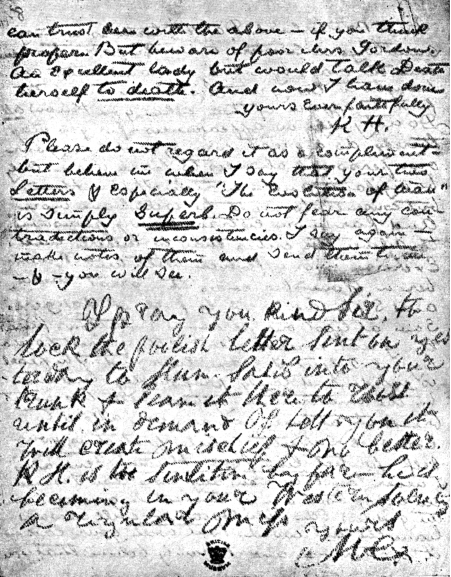 can trust even with the above — if you think
proper. But beware of poor Mrs. Gordon.
An excellent lady but would talk Death
herself to death. And now I have done
yours ever faithfully
K H.
Please do not regard it as a compliment —
but believe me when I say that your two
Letters & especially "The Evolution of Man"
is simply Superb. Do not fear any con-
tradictions or inconsistencies. I say again —
make notes of them and send them to me
— & — you will see.
I pray you, kind Sir, to
lock the foolish letter sent on yes
terday to Hum-Sahib into your
trunk & leave it there to roost
until in demand. I tell you it
will create mischief & no better.
K.H. is too sensitive by far — he is
becoming in your Western Society
a regular Miss.
yours
M